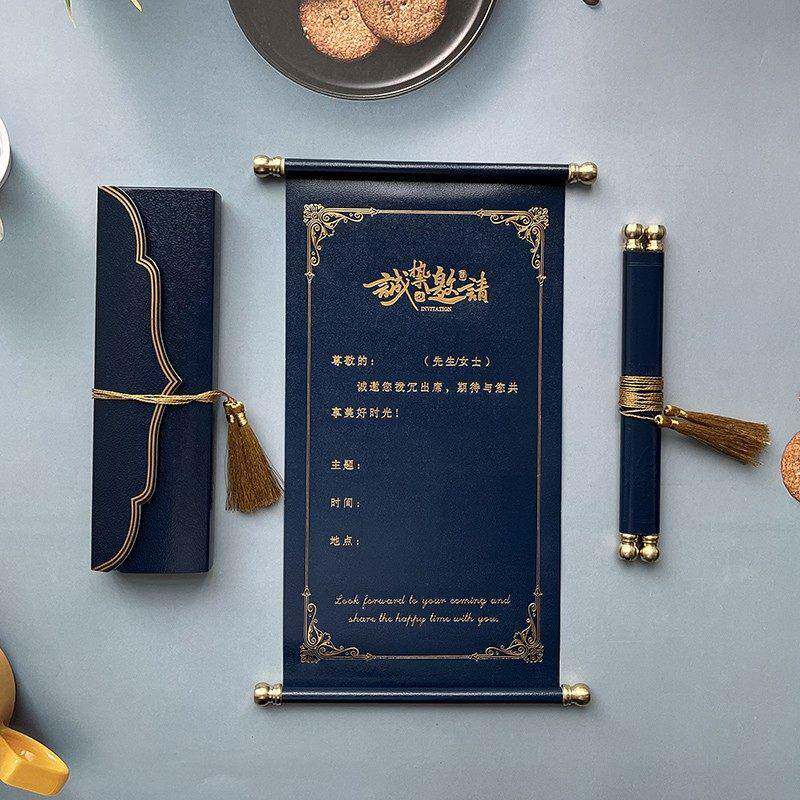 誠摯邀請
INVITATION
尊敬的： （先生/女士）
诚邀您拨冗出席，期待与您共
享美好时光！
主题：
时间：
地点：
Look forward to your coming and
share the happy time with you.